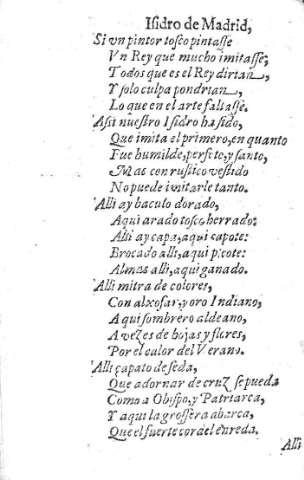 Isidro de Madrid,
Si vn pintor tosco pintasse
Vn Rey que mucho imitasse;
Todos que es el Rey dirian,
Y solo culpa pondrian,
Lo que en el arte faltasse.
Assi nuestro Isidro ha sido,
Que imita el primero, en quanto
Fue humilde, perfeto, y santo,
Mas con rustico vestido
No puede imitarle tanto.
Alli ay baculo dorado,
Aqui arado tosco herrado:
Alli ay capa, aqui capote:
Brocado alli, aqui picote:
Almas alli, aqui ganado.
Alli mitra de colores,
Con aljofar, y oro Indiano,
Aqui sombrero aldeano,
A vezes de hojas y flores,
Por el calor del Verano.
Alli çapato de seda,
Que adornar de cruz se pueda
Como a Obispo, y Patriarca,
Y aqui la grossera abarca,
Que el fuerte cordel enreda.
Alli